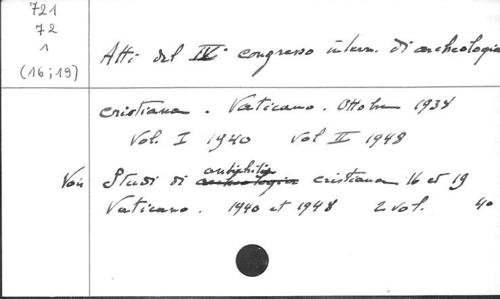 721
72
1
(16;19)
Atti del IV° congresso intern. di archeologia
cristiana. Vaticano. Ottobre 1938
Vol. I 1940 Vol II 1948
Voir Studi di antichità archeologia cristiana 16 et 19
Vaticano. 1940 et 1948 2 vol. 4o